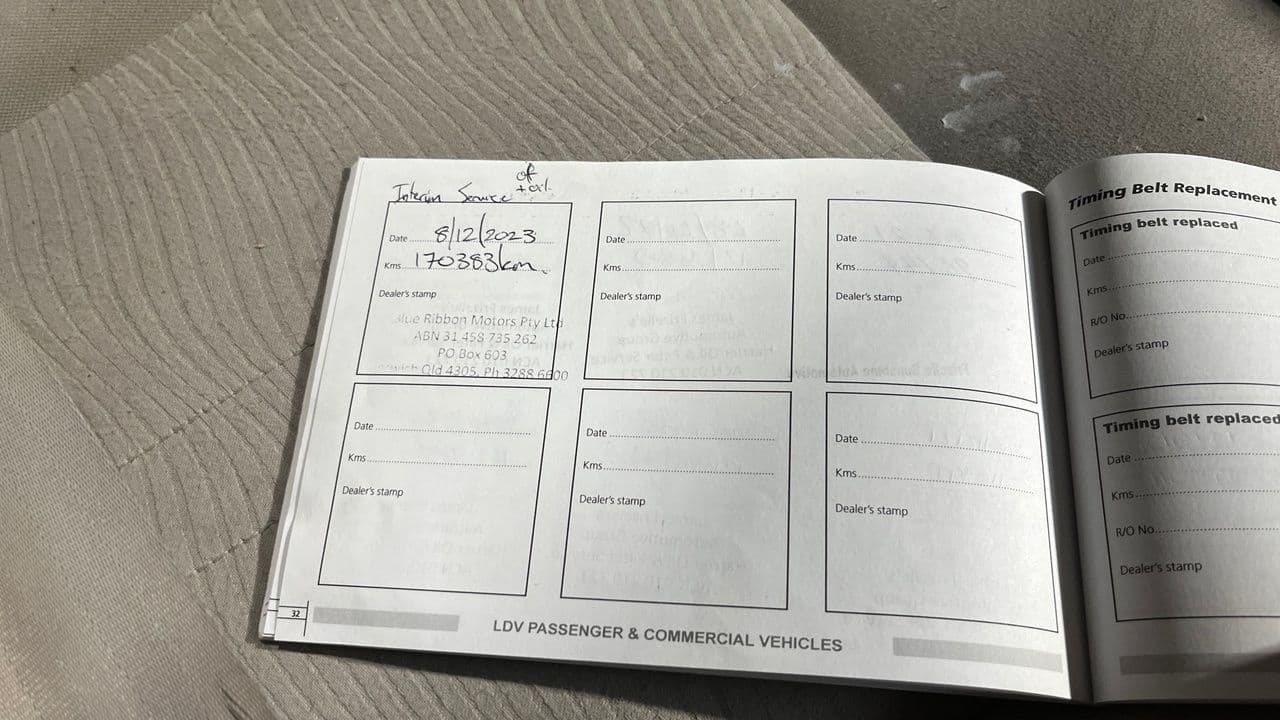 of
Interim Service + oil.
Date 8/12/2023
Kms 170383km.
Dealer's stamp
Blue Ribbon Motors Pty Ltd
ABN 31 458 735 262
PO Box 603
Qld 4305, Ph 3288 6600
Date
Kms
Dealer's stamp
Date
Kms
Dealer's stamp
Date
Kms
Dealer's stamp
Date
Kms
Dealer's stamp
Date
Kms
Dealer's stamp
32
LDV PASSENGER & COMMERCIAL VEHICLES
Timing Belt Replacement
Timing belt replaced
Date
Kms
R/O No
Dealer's stamp
Timing belt replaced
Date
Kms
R/O No
Dealer's stamp